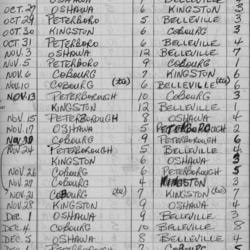 OSHAWA 6 KINGSTON 3
OCT. 27 PETERBORO 5 BELLEVILLE
OCT 29 OSHAWA 6 KINGSTON
OCT 30 KINGSTON 6 COBOURG 1
OCT 31 PETERBORO 6 BELLEVILLE 4
NOV. 3 OSHAWA 12 BELLEVILLE 7
NOV. 5 PETERBORO 9 KINGSTON
NOV. 6 COBOURG 7 KINGSTON
NOV 10 COBOURG (tie) 6 BELLEVILLE (tie) 6
NOV 13 PETERBOROUGH 10 COBOURG 3
KINGSTON 12 BELLEVILLE 1
NOV 15 PETERBOROUGH 8 OSHAWA 4
NOV 17 OSHAWA 5 PETERBORO 2
NOV 20 COBOURG 9 PETERBORO 6
NOV 24 PETERBOROUGH 5 BELLEVILLE 4
KINGSTON 6 OSHAWA 3
NOV 26 COBOURG 6 PETERBORO 5
NOV 27 COBOURG 4 KINGSTON 3
NOV COBOURG (tie) 7 KINGSTON (tie) 7
NOV OSHAWA 4 KINGSTON
DEC. 1 OSHAWA 9 BELLEVILLE 3
DEC. 4 COBOURG 10 BELLEVILLE
DEC. 5 OSHAWA 8 BELLEVILLE
COBOURG